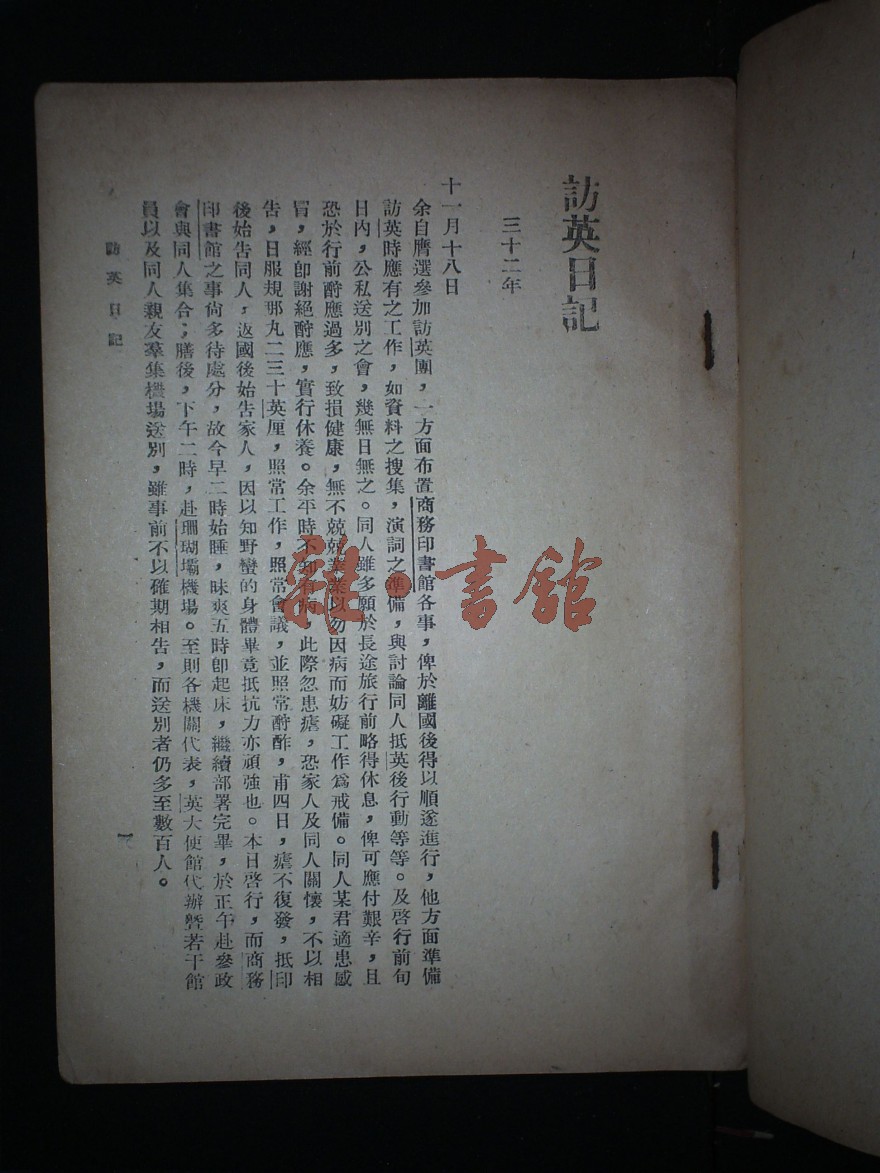 訪英日記
三十二年
十一月十八日
余自膺選參加訪英團，一方面布置商務印書館各事，俾於離國後得以順遂進行，他方面準備
訪英時應有之工作，如資料之搜集，演詞之準備，與討論同人抵英後行動等等。及啓行前旬
日內，公私送別之會，幾無日無之。同人雖多願於長途旅行前略得休息，俾可應付艱辛，且
恐於行前酬應過多，致損健康，無不兢兢業業以勿因病而妨礙工作爲戒備。同人某君適患感
冒，經卽謝絕酬應，實行休養。余平時不知有病，此際忽患瘧，恐家人及同人關懷，不以相
告，日服規那丸二三十英厘，照常工作，照常會議，並照常酬酢，甫四日，瘧不復發，抵印
後始告同人，返國後始告家人，因以知野蠻的身體畢竟抵抗力亦頑強也。本日啓行，而商務
印書館之事尙多待處分，故今早二時始睡，昧爽五時卽起床，繼續部署完畢，於正午赴參政
會與同人集合；膳後，下午二時，赴珊瑚壩機場。至則各機關代表，英大使館代辦曁若干館
員以及同人親友羣集機場送別，雖事前不以確期相告，而送別者仍多至數百人。
訪英日記
一
雜·書館